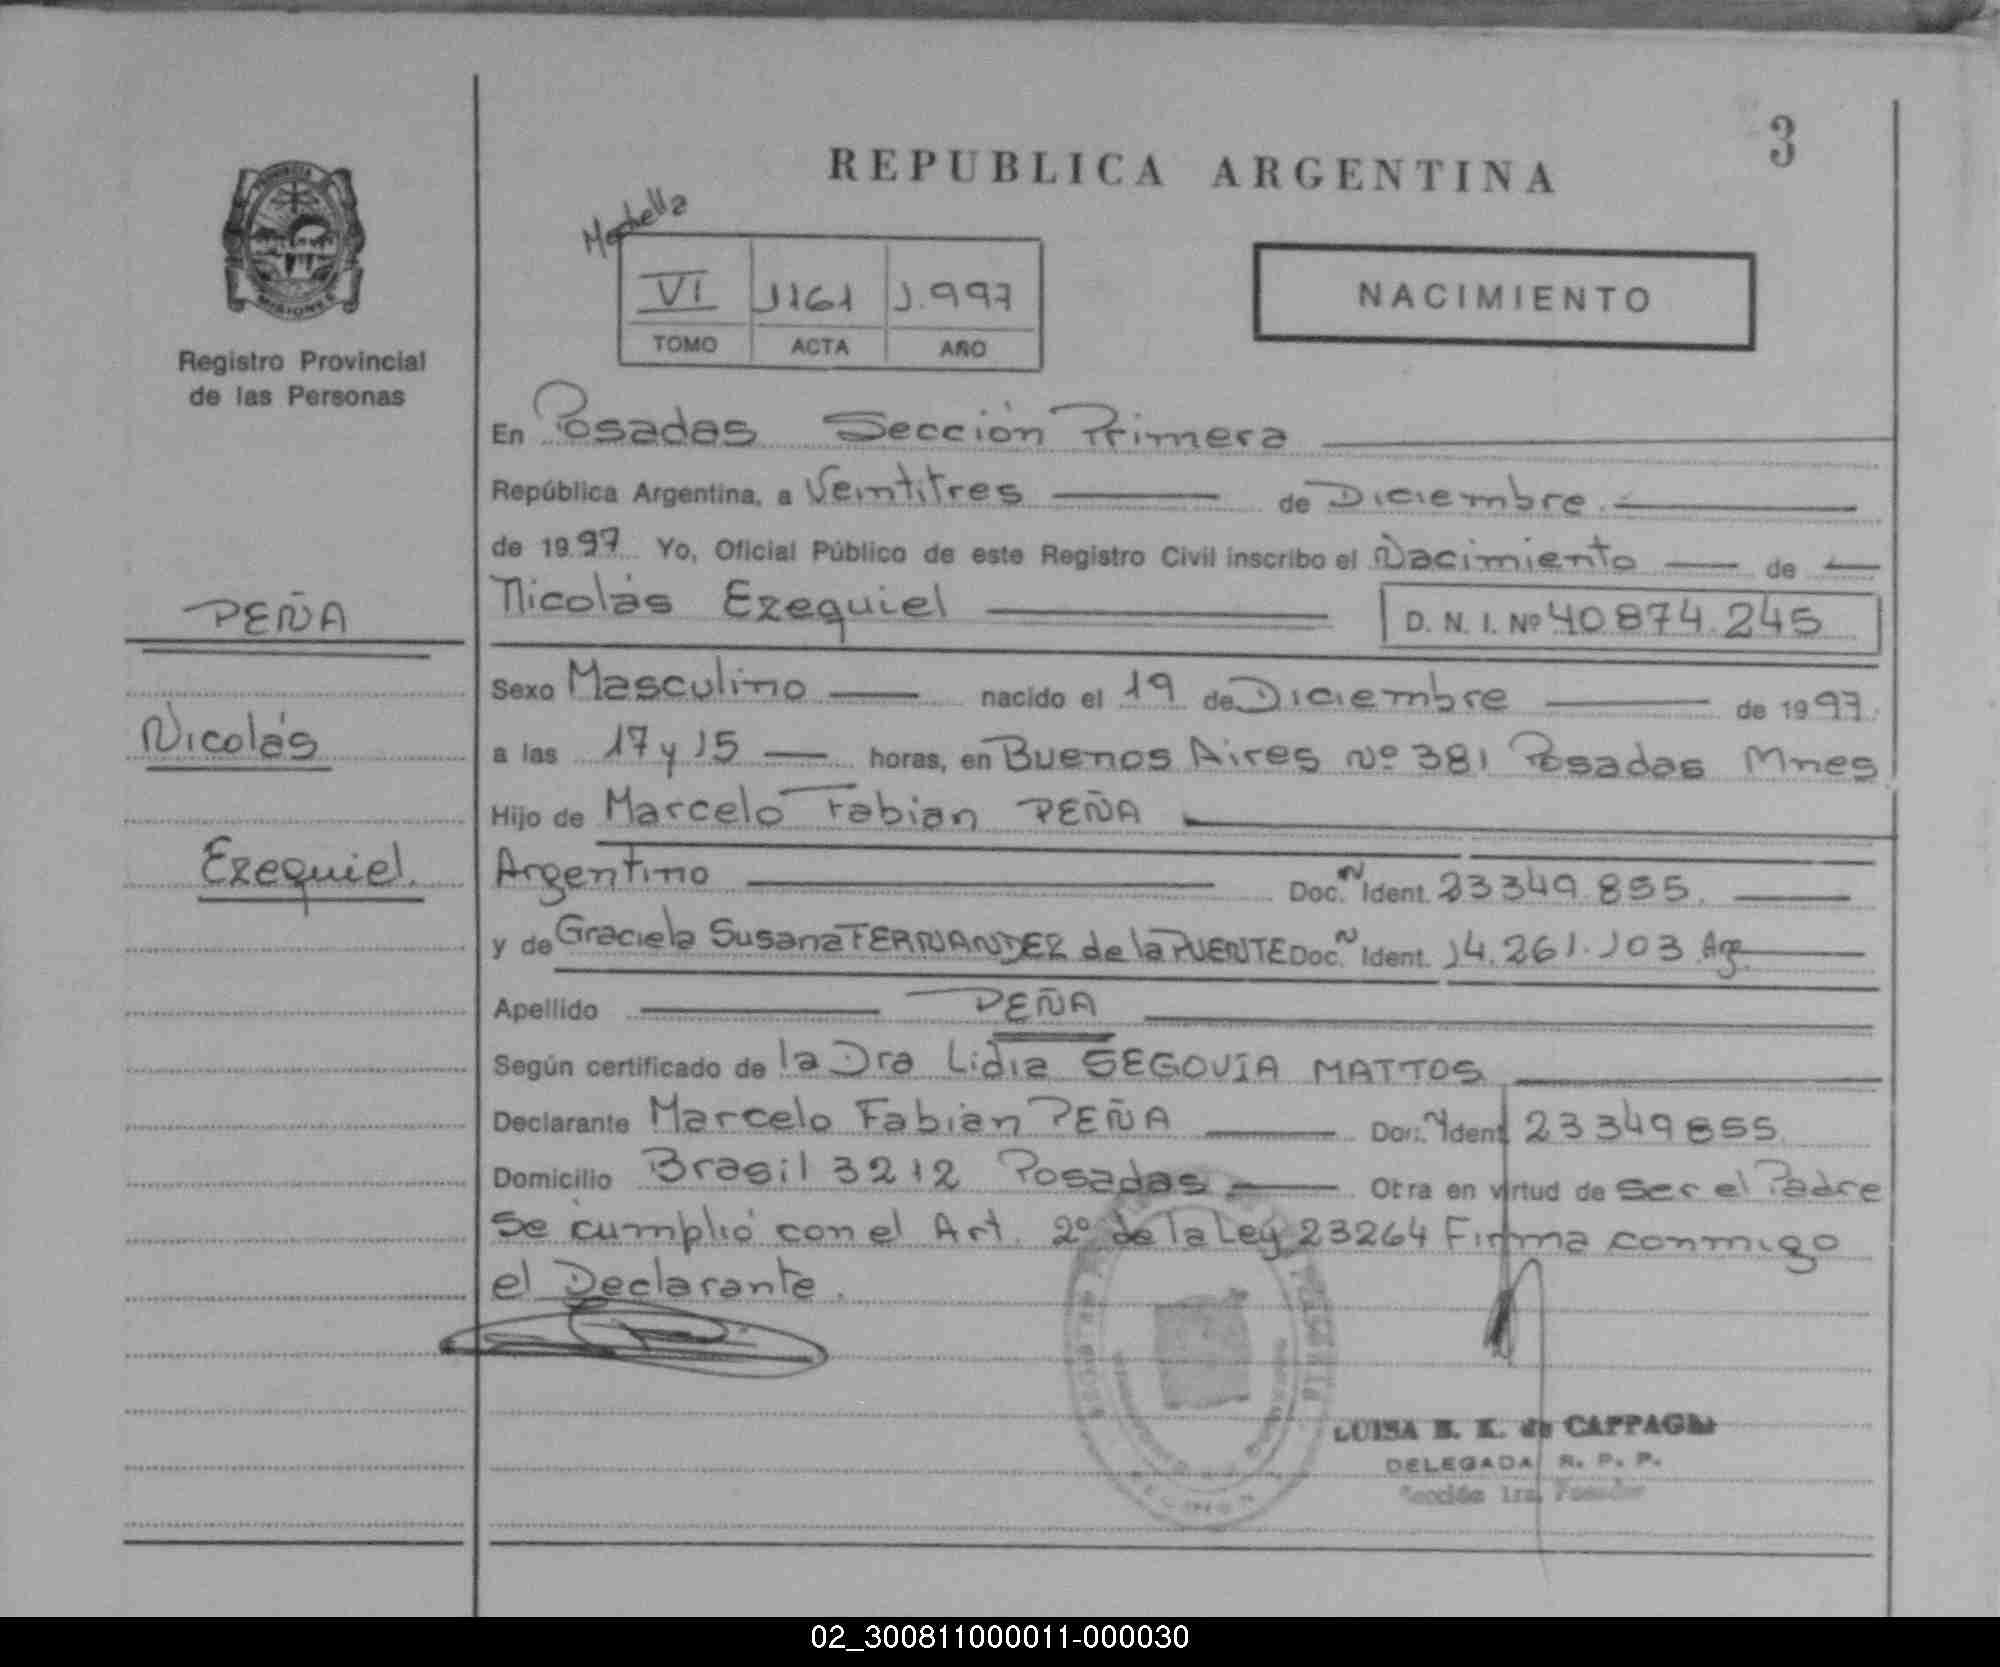 3
REPUBLICA ARGENTINA
PROVINCIA
MISIONES
Registro Provincial
de las Personas
VI 1161 1.997
TOMO ACTA AÑO
NACIMIENTO
En Posadas Sección Primera
República Argentina, a Veintitres de Diciembre
de 1997 Yo, Oficial Público de este Registro Civil inscribo el Nacimiento de
PEÑA
Nicolás Ezequiel D. N. I. Nº 40.874.245
Sexo Masculino nacido el 19 de Diciembre de 1997
Nicolás
a las 17 y 15 horas, en Buenos Aires Nº 381 Posadas Mnes
Hijo de Marcelo Fabian PEÑA
Ezequiel.
Argentino Doc. N Ident. 23349.855.
y de Graciela Susana FERNANDEZ de la PUENTE Doc. N Ident. 14.261.103 Arg.
Apellido PEÑA
Según certificado de la Dra Lidia SEGOVIA MATTOS
Declarante Marcelo Fabian PEÑA Doc. N Ident. 23349855
Domicilio Brasil 3212 Posadas Otra en virtud de Ser el Padre
Se cumplió con el Art. 2º de la Ley 23264 Firma conmigo
el Declarante.
LUISA E. K. de CAPPAGLI
DELEGADA R. P. P.
Sección 1ra. Posadas
02_300811000011-000030